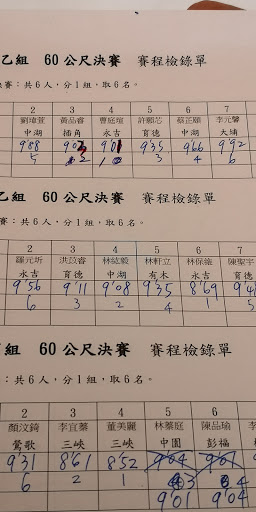 乙組 60公尺決賽 賽程檢錄單
賽：共6人，分1組，取6名。
2 3 4 5 6 7
劉瑋萱 黃品睿 曹庭瑄 許顥芯 蔡芷順 李元馨
中湖 插角 永吉 育德 中湖 大埔
9'88 9'02 9'01 9'35 9'66 9'92
5 2 1 3 4 6
乙組 60公尺決賽 賽程檢錄單
賽：共6人，分1組，取6名。
2 3 4 5 6 7
羅元圻 洪苡睿 林紘毅 林軒立 林保鎮 陳聖宇
永吉 育德 中湖 有木 永吉 育德
9'56 9'11 9'08 9'35 8'69 9'4
6 3 2 4 1 5
組 60公尺決賽 賽程檢錄單
：共6人，分1組，取6名。
2 3 4 5 6
顏妏錡 李宜蓁 董美麗 林蓁庭 陳品瑜
鶯歌 三峽 三峽 中園 彭福
9'31 8'61 8'52 9'04 9'01
6 2 1 3 4
9'01 9'04